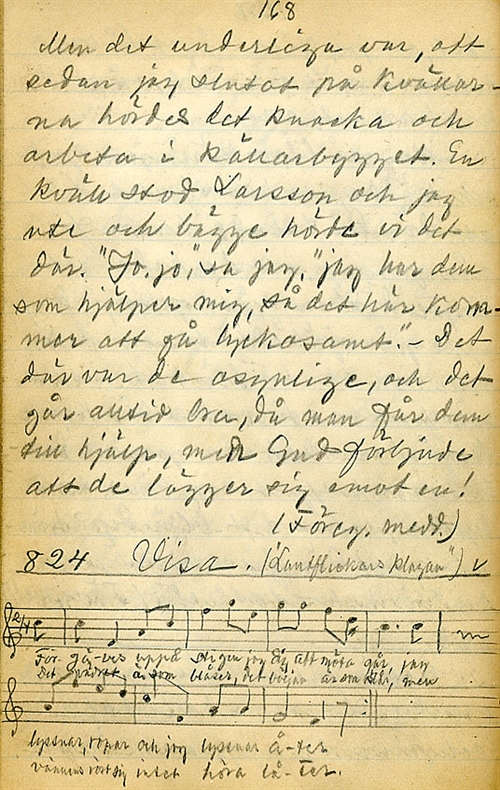 168
Men det underliga var, att
sedan jag slutat på kvällar-
na hördes det knacka och
arbeta i källarbygget. En
kväll stod Larsson och jag
ute och bägge hörde vi det
där. "Jo, jo," sa jag, "jag har dem
som hjälper mig, så det här kom-
mer att gå lyckosamt." - Det
där var de osynlige, och det
går alltid bra, då man får dem
till hjälp, men Gud förbjude
att de lägger sig emot en!
(Föreg. medd.)
824 Visa. ("Lantflickans klagan") v
2/4
För gäves uppå stigen jag dig att möta går, jag
Det vädret är som blåser, det böljan är som slår, men
lyssnar, ropar och jag lyssnar å-ter
vännens röst sig intet höra lå-ter.